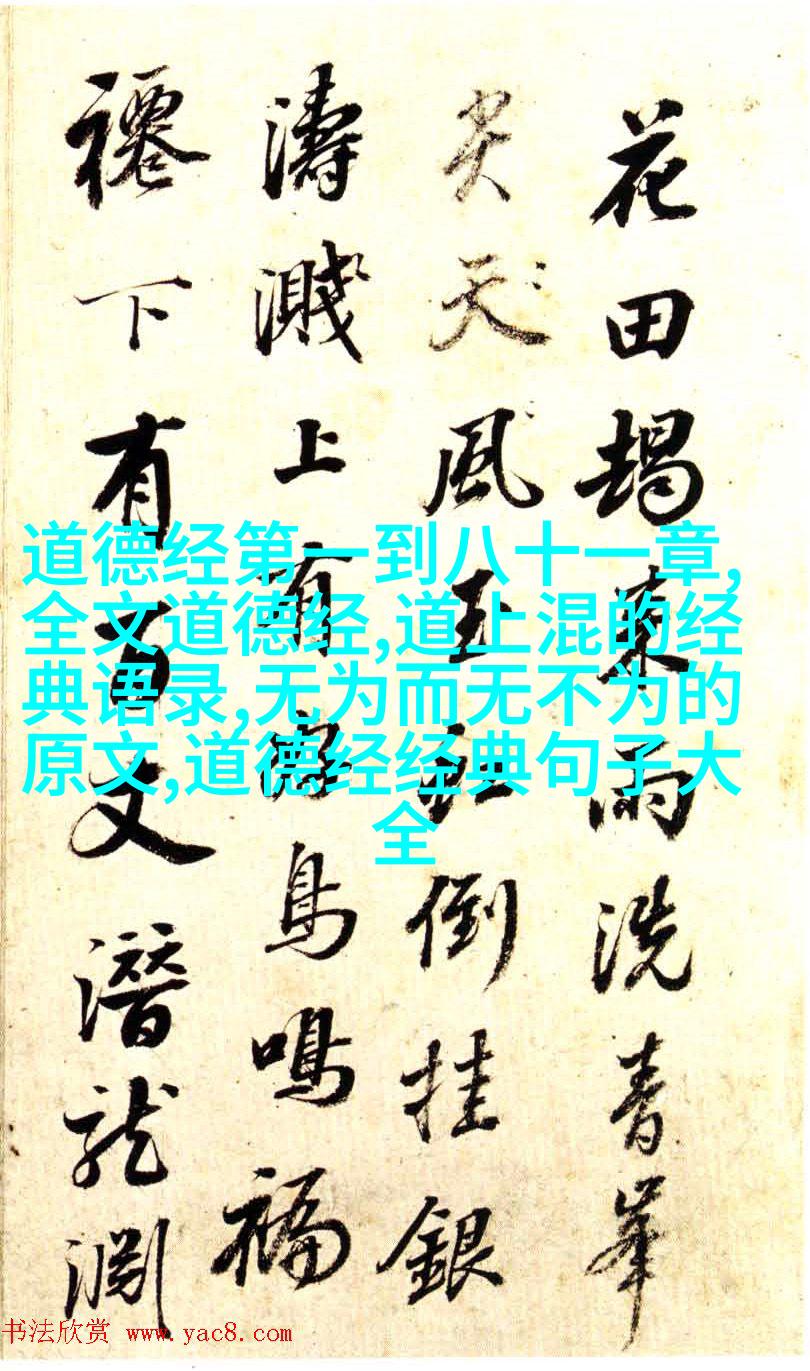 花田朅來雨洗青峯
尖天風玉虹倒挂銀
濤濺上有鳥鳴福
下有百丈潛龍淵
道德经第一到八十一章,
全文道德经,道上混的经
典语录,无为而无不为的
原文,道德经经典句子大
全
书法欣赏 www.yac8.com